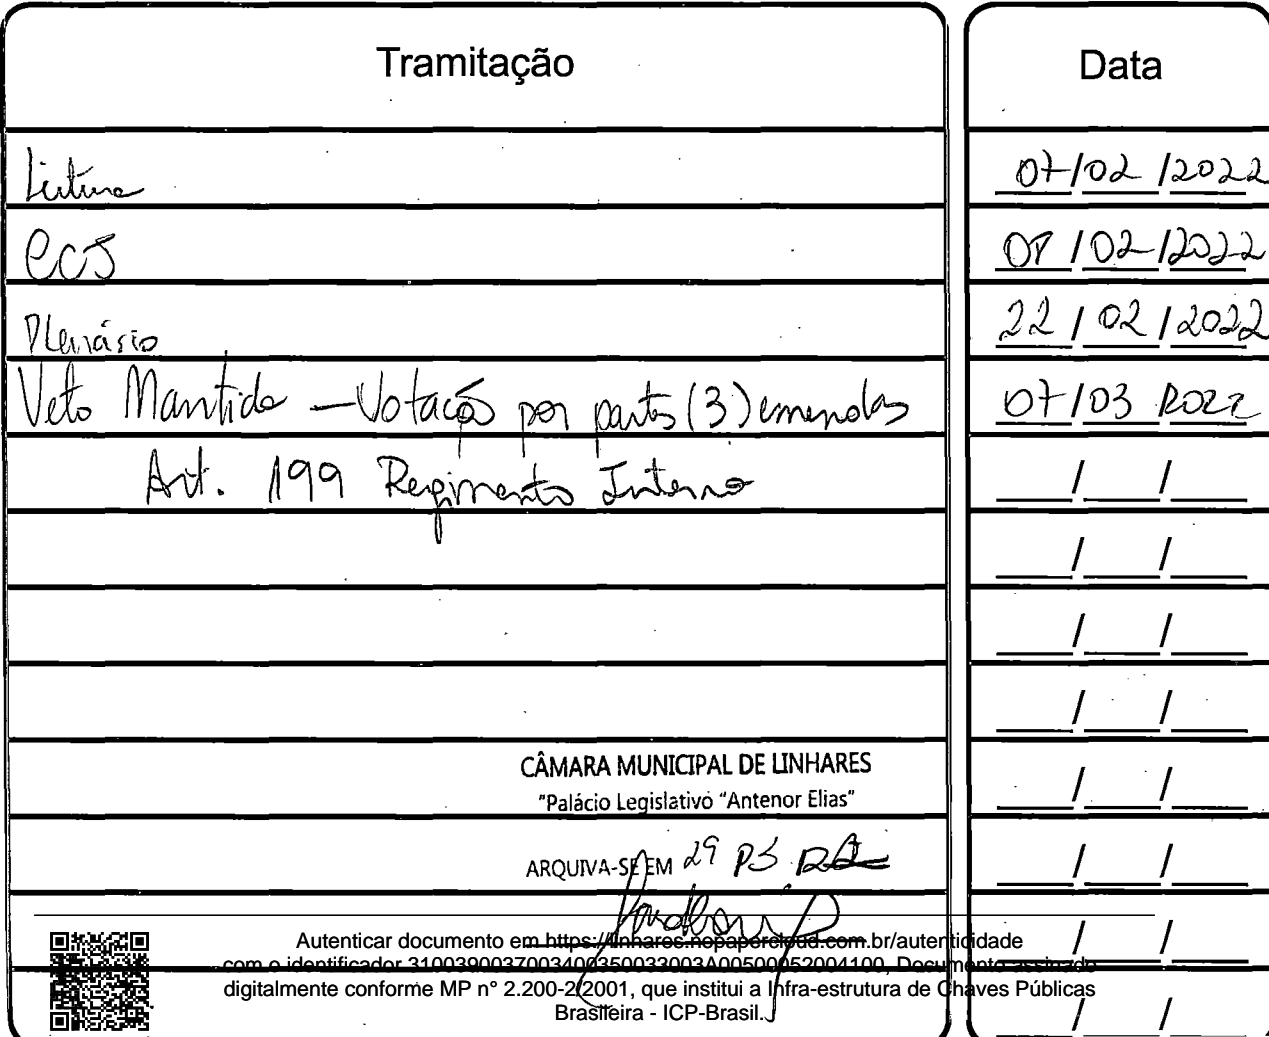 Tramitação Data
Leitura 07/02/2022
CCJ 08/02/2022
Plenário 22/02/2022
Veto Mantido - Votação por partes (3) emendas 07/03 2022
Art. 199 Regimento Interno
CÂMARA MUNICIPAL DE LINHARES
"Palácio Legislativo "Antenor Elias"
ARQUIVA-SE EM 29
Autenticar documento em https://linhares.nopapercloud.com.br/autenticidade
com o identificador 3100390037003400350033003A00500052004100, Documento assinado
digitalmente conforme MP n° 2.200-2/2001, que institui a Infra-estrutura de Chaves Públicas
Brasileira - ICP-Brasil.